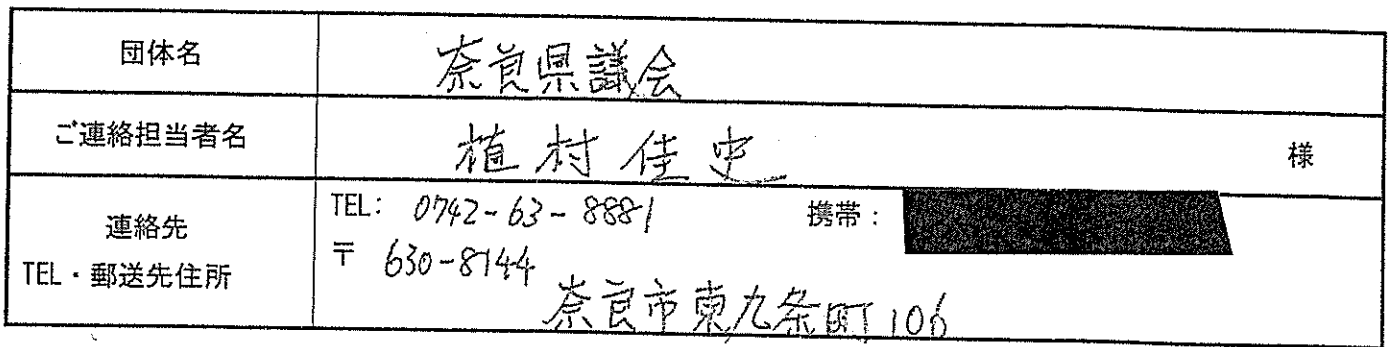 団体名 奈良県議会
ご連絡担当者名 植村佳史 様
連絡先 TEL・郵送先住所 TEL: 0742-63-8881 携帯:
〒 630-8144
奈良市東九条町106